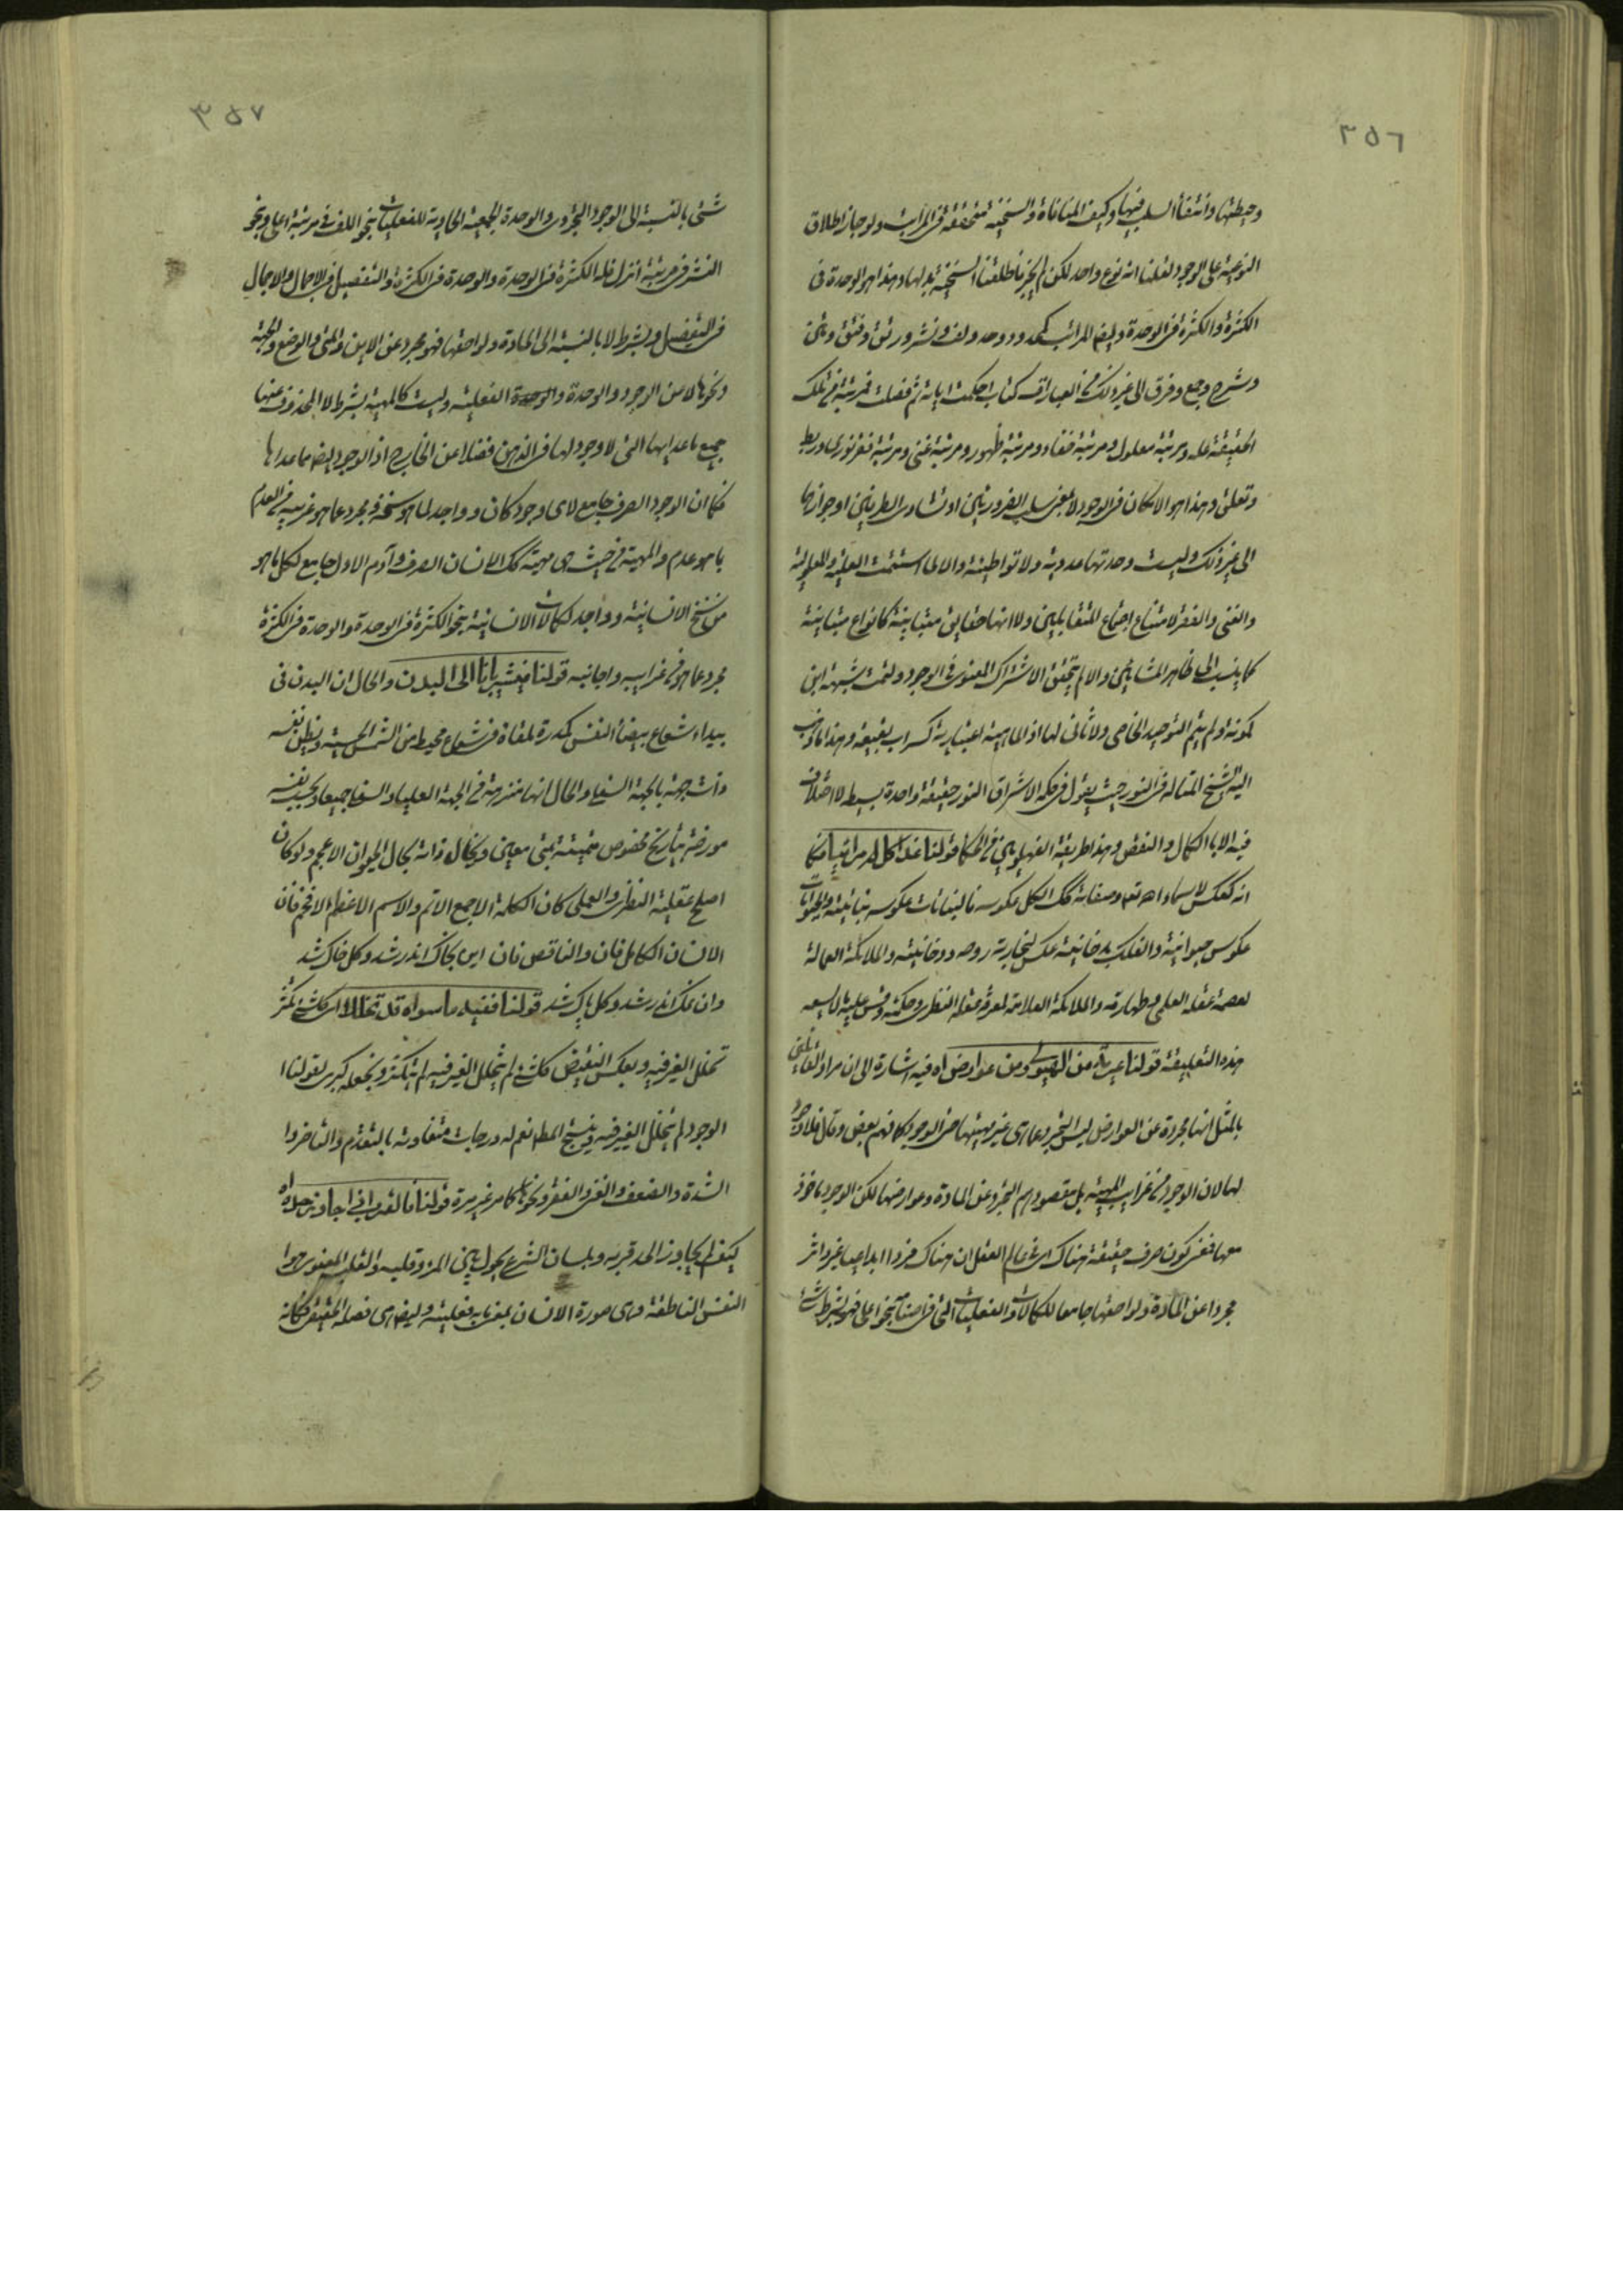 ٣٥٦
وحيطتها وانتفاء السلب فيها وكيف المنافاة والسنخية متحققة فى المراتب ولو جاز اطلاق
النوعية على الوجود لقلنا انه نوع واحد لكن لم يجز فاطلقنا السنخية بدلها وهذا هو الوحدة فى
الكثرة والكثرة فى الوحدة وايضا المراتب كحد وحد ولف ونشر ورتق وفتق ومتن
وشرح وجمع وفرق الى غير ذلك من العبارات كتاب احكمت اياته ثم فصلت فمرتبة من تلك
الحقيقة علة ومرتبة معلول ومرتبة خفاء ومرتبة ظهور ومرتبة غنى ومرتبة فقر نورى وربط
وتعلق وهذا هو الامكان فى الوجود لا بمعنى سلب الضرورتين او تساوى الطرفين او جوازها
الى غير ذلك وليست وحدتها عددية ولا تواطئية والا لما استتمت العلية والمعلولية
والغنى والفقر لامتناع اجتماع المتقابلين ولا انها حقايق متباينة كانواع متباينة
كما ينسب الى ظاهر المشائين والا لم يتحقق الاشتراك المعنوى فى الوجود ولتمت شبهة ابن
كمونة ولم يتم التوحيد الخاصى ولا ثانى لها اذ الماهية اعتبارية كسراب بقيعة وهذا ما ذهب
اليه الشيخ المتاله فى النور حيث يقول فى حكمة الاشراق النور حقيقة واحدة بسيطة لا اختلاف
فيه الا بالكمال والنقص وهذا طريقة الفهلويين من الحكما قولنا غدا كل مراتبها فكا
انه كعكس لاسماء الله تعالى وصفاته كك الكل عكوسه فالنباتات عكوسه نباتيته والحيوانات
عكوس حيوانيته والفلك بدخانيته عكس لبخارية روحه ودخانيته والملائكة العمالة
لعصمة عقله العملى وطهارته والملائكة العلامة لمعرفة عقله النظرى وحكمته وقس عليه ما لا يسعه
هذه التعليقة قولنا عرية من الهيولى ومن عوارض اه فيه اشارة الى ان مراد القائلين
بالمثل انها مجردة عن العوارض ليس التجرد عما هى غير مهيتها حتى الوجود كما فهم بعض وقال فلا وجود
لها لان الوجود من غرايب المهية بل مقصودهم التجرد عن المادة وعوارضها لكن الوجود ماخوذ
معها فمعنى كون صرف حقيقة هناك اى فى عالم العقل ان هناك فردا ابداعيا غير داثر
مجردا عن المادة ولواحقها جامعا للكمالات والفعليات التى فى اصنامه بنحو اعلى فهو بشرط شئ
٣٥٧
شئ بالنسبة الى الوجود التجردى والوحدة الجمعية الحاوية للفعليات بنحو اللف فى مرتبة اعلى وبنحو
النشر فى مرتبة انزل فله الكثرة فى الوحدة والوحدة فى الكثرة والتفصيل فى الاجمال والاجمال
فى التفصيل وبشرط لا بالنسبة الى المادة ولواحقها فهو مجرد عن الاين والمتى والوضع والجهة
ونحوها لا من الوجود والوحدة والوحدة الفعلية وليست كالمهية بشرط لا المحذوف عنها
جميع ما عداها التى لا وجود لها فى الذهن فضلا عن الخارج اذ الوجود ايضا مما عداها
فكما ان الوجود الصرف جامع لاى وجود كان وواجد لما هو سنخه ومجرد عما هو غريبه من العدم
بما هو عدم والمهية من حيث هى مهية كك الانسان الصرف وآدم الاول جامع لكل ما هو
من سنخ الانسانية وواجد لكمالات الانسانية بنحو الكثرة فى الوحدة والوحدة فى الكثرة
مجرد عما هو من غرايبه واجانبه قولنا فيشير بانا الى البدن والحال ان البدن فى
بيداء شعاع بيضاء النفس كمدرة ملقاة فى شعاع محيط من الشمس الحسية ويظن نفسه
ذات جهة بالجهة السفلى والحال انها منزهة من الجهة العليا والسفلى جميعا ويحسب نفسه
مورخة بتاريخ مخصوص متمتية بمتى معين ويخال ذاته كحال الحيوان الاعجم ولو كان
اصلح عقليه النظرى والعملى كان الكلمة الاجمع الاتم والاسم الاعظم الافخم فان
الانسان الكامل فان والناقص فان اين بخاك اندر شد وكل خاك شد
وان نمك اندر شد وكل پاك شد قولنا ففيه ما سواه قد تخللا اى كل شئ تكثر
تخلل الغير فيه وبعكس النقيض كل شئ لم يتخلل الغير فيه لم يتكثر ونجعله كبرى لقولنا
الوجود لم يتخلل الغير فيه وينتج المط نعم له درجات متفاوته بالتقدم والتاخر وا
الشدة والضعف والغنى والفقر ونحوها كما مر غير مرة قولنا فالقرب فى ايجاوز حده اه
كيف لم يجاوز الحد قربه وبلسان الشرع يحول بين المرء وقلبه والقلب المعنوى هو
النفس الناطقة وهى صورة الانسان بمعنى ما به فعليته وايضا هى فصله الحقيقى فكانه